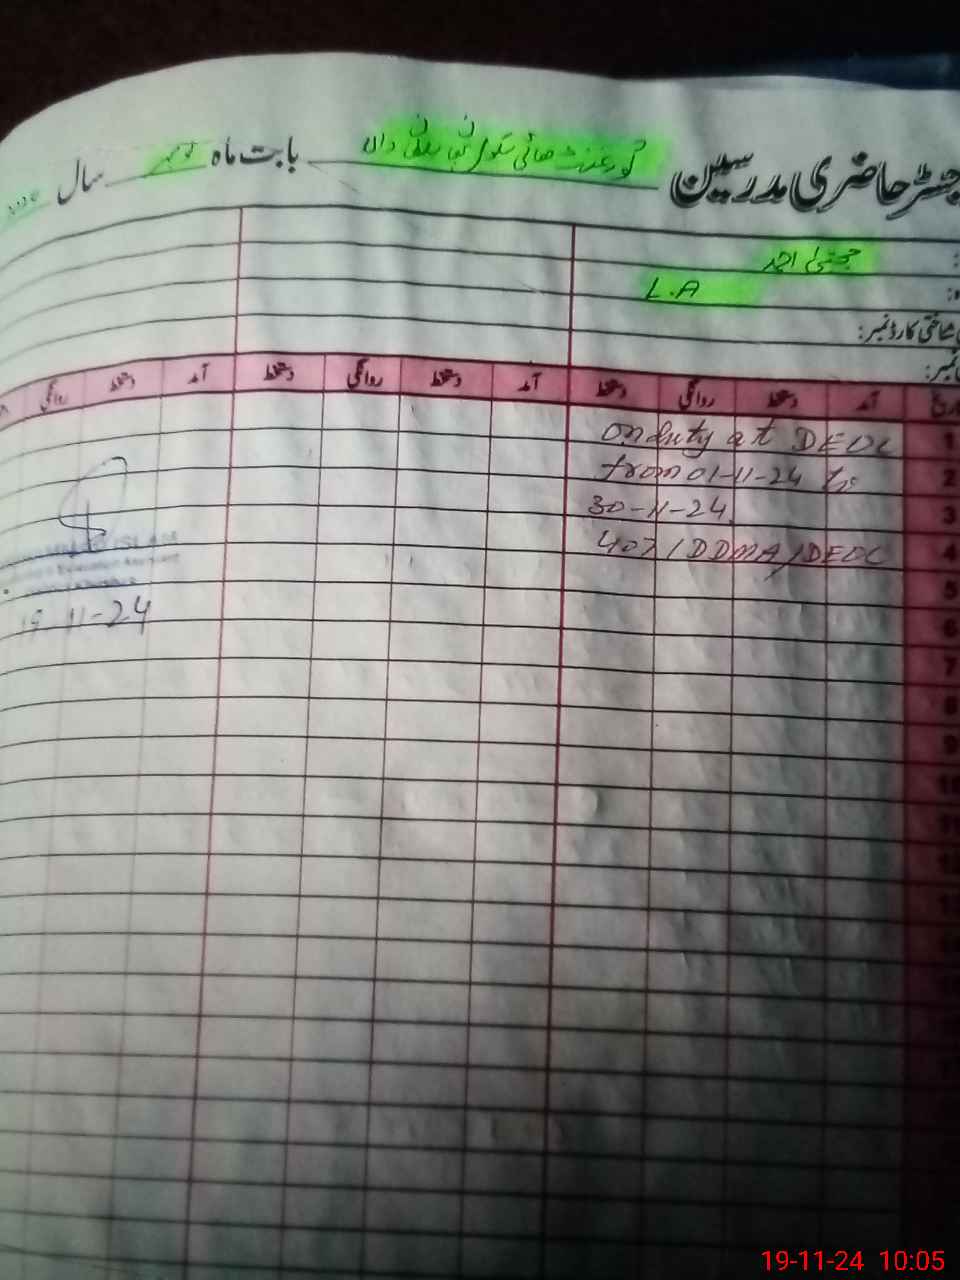 رجسٹر حاضری مدرسین گورنمنٹ ہائی سکول بابت ماہ نومبر سال
مجتبیٰ احمد
L.A
شناختی کارڈ نمبر:
نمبر:
تاریخ آمد دستخط روانگی دستخط آمد دستخط روانگی دستخط آمد دستخط روانگی
1 on duty at DEOC
2 from 01-11-24 to
3 30-11-24.
4 407/DDMA/DEOC
5
6
7
8
9
ISLAM
11-24
19-11-24 10:05